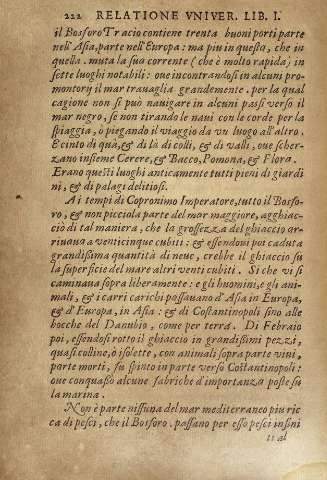 222 RELATIONE VNIVER. LIB. I.
il Bosforo Tracio contiene trenta buoni porti parte
nell'Asia, parte nell'Europa: ma piu in questa, che in
quella. muta la sua corrente (che è molto rapida) in
sette luoghi notabili: oue incontrandosi in alcuni pro-
montory il mar trauaglia grandemente. per la qual
cagione non si può nauigare in alcuni passi verso il
mar negro, se non tirando le naui con le corde per la
spiaggia, ò piegando il viaggio da vn luogo all'altro.
E cinto di quà, & di là di colli, & di valli, oue scher-
zano insieme Cerere, & Bacco, Pomona, & Flora.
Erano questi luoghi anticamente tutti pieni di giardi
ni, & di palagi delitiosi.
A i tempi di Copronimo Imperatore, tutto il Bosfo-
ro, & non picciola parte del mar maggiore, agghiac-
ciò di tal maniera, che la grossezza del ghiaccio ar-
riuaua a venticinque cubiti: & essendoui poi caduta
grandissima quantità di neue, crebbe il ghiaccio su
la superficie del mare altri venti cubiti. Si che vi si
caminaua sopra liberamente: e gli huomini, e gli ani-
mali, & i carri carichi passauano d'Asia in Europa,
& d'Europa, in Asia: & di Costantinopoli sino alle
bocche del Danubio, come per terra. Di Febraio
poi, essendosi rotto il ghiaccio in grandissimi pezzi,
quasi colline, ò isolette, con animali sopra parte viui,
parte morti, fu spinto in parte verso Costantinopoli:
oue conquassò alcune fabriche d'importanza poste su
la marina.
Non è parte nissuna del mar mediterraneo piu ric
ca di pesci, che il Bosforo. passano per esso pesci infini
ti al